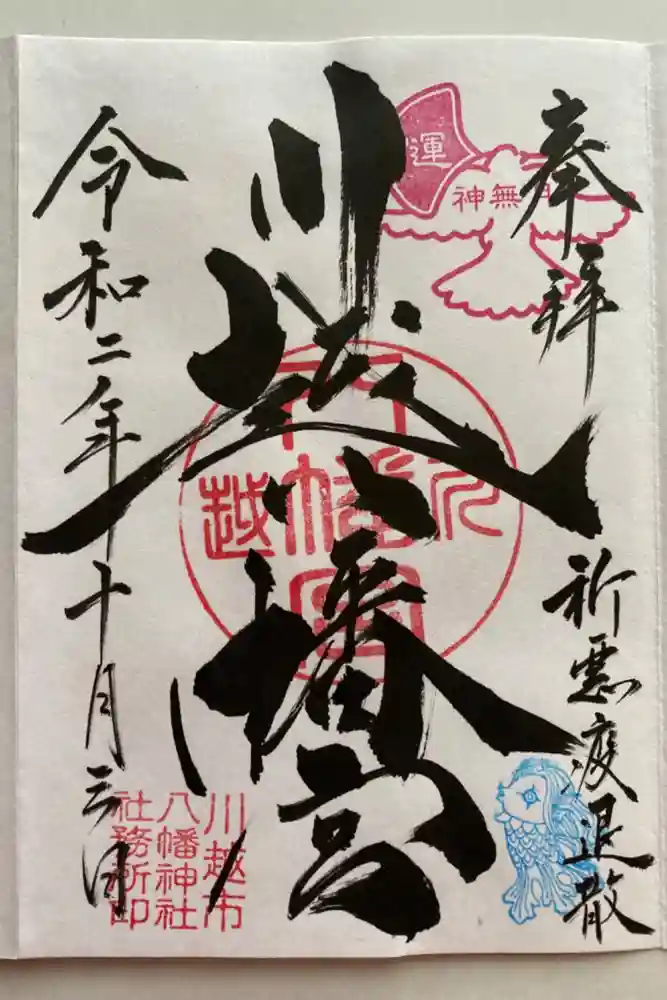 奉拝
祈悪疫退散
運
神無月
川越八幡宮
川越
八幡宮
令和二年十月三日
川越市
八幡神社
社務所印